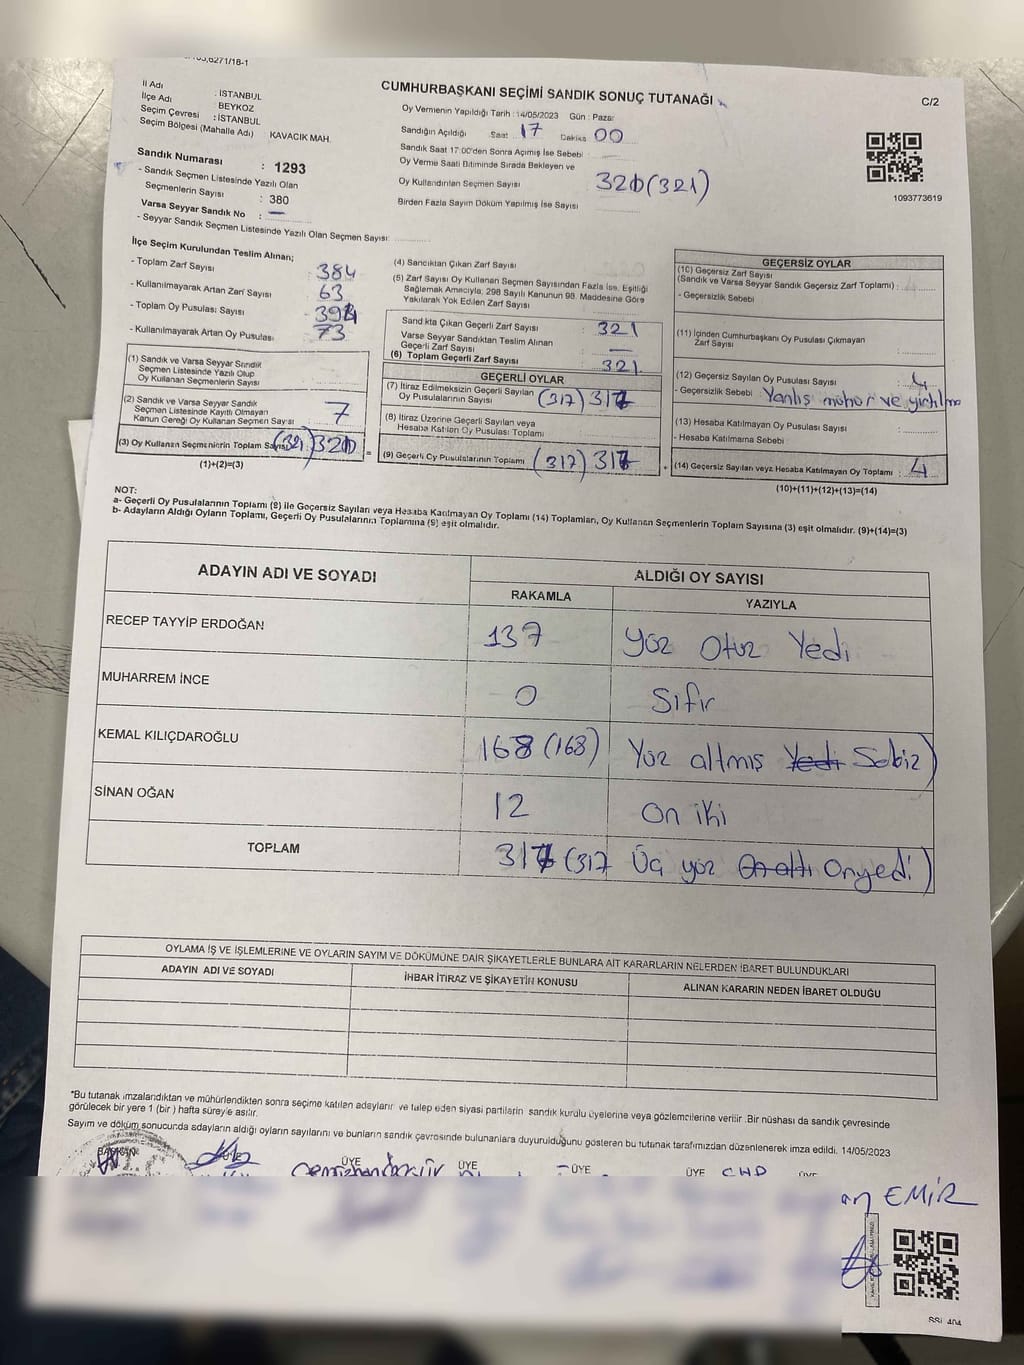 C/2
İl Adı : İSTANBUL
İlçe Adı : BEYKOZ
Seçim Çevresi : İSTANBUL
Seçim Bölgesi (Mahalle Adı) KAVACIK MAH.
Sandık Numarası : 1293
- Sandık Seçmen Listesinde Yazılı Olan
Seçmenlerin Sayısı : 380
Varsa Seyyar Sandık No : —
- Seyyar Sandık Seçmen Listesinde Yazılı Olan Seçmen Sayısı:
CUMHURBAŞKANI SEÇİMİ SANDIK SONUÇ TUTANAĞI
Oy Vermenin Yapıldığı Tarih : 14/05/2023 Gün : Pazar
Sandığın Açıldığı Saat 17 Dakika 00
Sandık Saat 17:00'den Sonra Açılmış İse Sebebi :
Oy Verme Saati Bitiminde Sırada Bekleyen ve
Oy Kullandırılan Seçmen Sayısı 321 (321)
Birden Fazla Sayım Döküm Yapılmış İse Sayısı
1093773619
İlçe Seçim Kurulundan Teslim Alınan;
- Toplam Zarf Sayısı : 384
- Kullanılmayarak Artan Zarf Sayısı : 63
- Toplam Oy Pusulası Sayısı : 394
- Kullanılmayarak Artan Oy Pusulası : 73
(1) Sandık ve Varsa Seyyar Sandık
Seçmen Listesinde Yazılı Olup
Oy Kullanan Seçmenlerin Sayısı
(2) Sandık ve Varsa Seyyar Sandık
Seçmen Listesinde Kayıtlı Olmayan
Kanun Gereği Oy Kullanan Seçmen Sayısı 7
(3) Oy Kullanan Seçmenlerin Toplam Sayısı (321) 321
(1)+(2)=(3)
(4) Sandıktan Çıkan Zarf Sayısı
(5) Zarf Sayısı Oy Kullanan Seçmen Sayısından Fazla İse, Eşitliği
Sağlamak Amacıyla; 298 Sayılı Kanunun 98. Maddesine Göre
Yakılarak Yok Edilen Zarf Sayısı
Sandıkta Çıkan Geçerli Zarf Sayısı : 321
Varsa Seyyar Sandıktan Teslim Alınan
Geçerli Zarf Sayısı : —
(6) Toplam Geçerli Zarf Sayısı 321
GEÇERLİ OYLAR
(7) İtiraz Edilmeksizin Geçerli Sayılan
Oy Pusulalarının Sayısı : (317) 317
(8) İtiraz Üzerine Geçerli Sayılan veya
Hesaba Katılan Oy Pusulası Toplamı
(9) Geçerli Oy Pusulalarının Toplamı (317) 317
GEÇERSİZ OYLAR
(10) Geçersiz Zarf Sayısı
(Sandık ve Varsa Seyyar Sandık Geçersiz Zarf Toplamı) :
- Geçersizlik Sebebi :
(11) İçinden Cumhurbaşkanı Oy Pusulası Çıkmayan
Zarf Sayısı :
(12) Geçersiz Sayılan Oy Pusulası Sayısı : 4
- Geçersizlik Sebebi : Yanlış mühür ve yırtılma
(13) Hesaba Katılmayan Oy Pusulası Sayısı :
- Hesaba Katılmama Sebebi :
(14) Geçersiz Sayılan veya Hesaba Katılmayan Oy Toplamı : 4
(10)+(11)+(12)+(13)=(14)
NOT:
a- Geçerli Oy Pusulalarının Toplamı (9) ile Geçersiz Sayılan veya Hesaba Katılmayan Oy Toplamı (14) Toplamları, Oy Kullanan Seçmenlerin Toplam Sayısına (3) eşit olmalıdır. (9)+(14)=(3)
b- Adayların Aldığı Oyların Toplamı, Geçerli Oy Pusulalarının Toplamına (9) eşit olmalıdır.
ADAYIN ADI VE SOYADI ALDIĞI OY SAYISI
RAKAMLA YAZIYLA
RECEP TAYYİP ERDOĞAN 137 Yüz Otuz Yedi
MUHARREM İNCE 0 Sıfır
KEMAL KILIÇDAROĞLU 168 (168) Yüz altmış Yedi Sekiz)
SİNAN OĞAN 12 On iki
TOPLAM 317 (317 Üç yüz On altı Onyedi)
OYLAMA İŞ VE İŞLEMLERİNE VE OYLARIN SAYIM VE DÖKÜMÜNE DAİR ŞİKAYETLERLE BUNLARA AİT KARARLARIN NELERDEN İBARET BULUNDUKLARI
ADAYIN ADI VE SOYADI İHBAR İTİRAZ VE ŞİKAYETİN KONUSU ALINAN KARARIN NEDEN İBARET OLDUĞU
*Bu tutanak imzalandıktan ve mühürlendikten sonra seçime katılan adayların ve talep eden siyasi partilerin sandık kurulu üyelerine veya gözlemcilerine verilir. Bir nüshası da sandık çevresinde
görülecek bir yere 1 (bir) hafta süreyle asılır.
Sayım ve döküm sonucunda adayların aldığı oyların sayılarını ve bunların sandık çevresinde bulunanlara duyurulduğunu gösteren bu tutanak tarafımızdan düzenlenerek imza edildi. 14/05/2023
BAŞKAN ÜYE ÜYE ÜYE ÜYE ÜYE CHP
EMİR